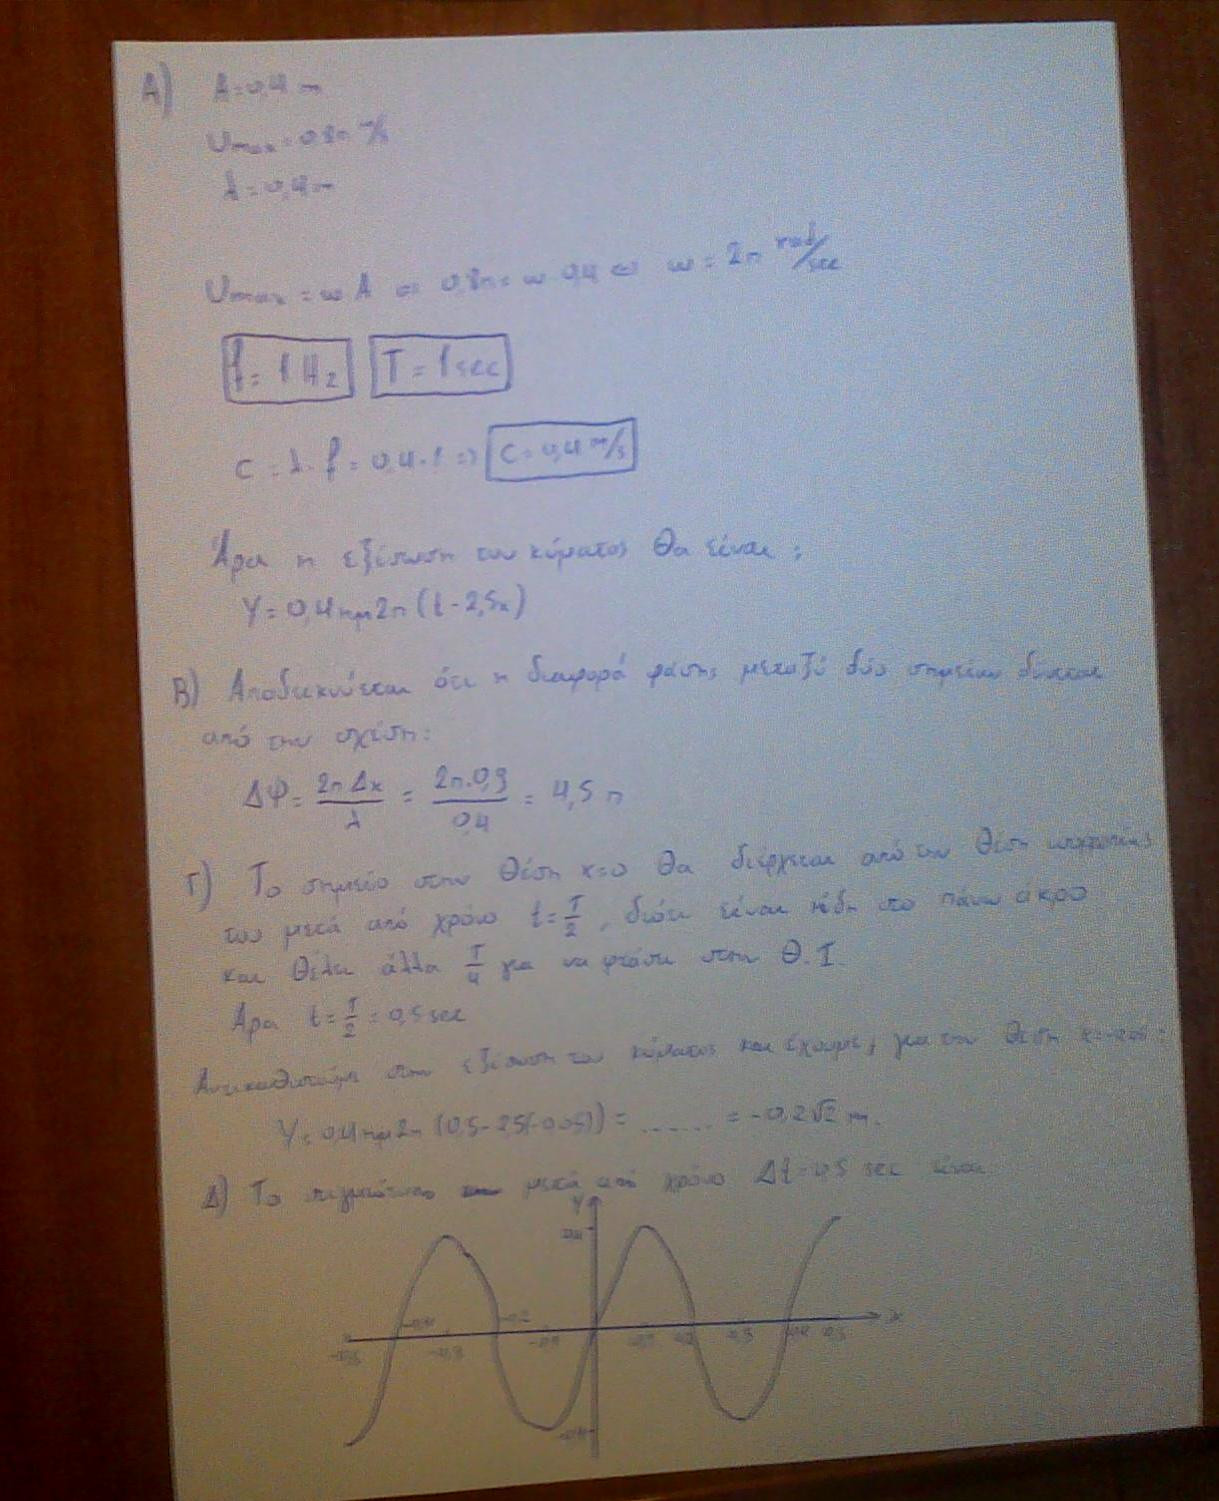 Α) A = 0,4 m
Umax = 0,8π m/s
λ = 0,4 m
Umax = ω A ⇔ 0,8π = ω 0,4 ⇔ ω = 2π rad/sec
f = 1 Hz T = 1 sec
c = λ · f = 0,4 · 1 ⇒ C = 0,4 m/s
Άρα η εξίσωση του κύματος θα είναι :
Y = 0,4 ημ 2π (t - 2,5x)
Β) Αποδεικνύεται ότι η διαφορά φάσης μεταξύ δύο σημείων δίνεται
από την σχέση:
ΔΦ = 2π Δx / λ = 2π · 0,9 / 0,4 = 4,5 π
Γ) Το σημείο στην θέση x=0 θα διέρχεται από την θέση ισορροπίας
του μετά από χρόνο t = T/2 , διότι είναι ήδη στο πάνω άκρο
και θέλει άλλα T/4 για να φτάσει στην Θ.Ι.
Άρα t = T/2 = 0,5 sec
Αντικαθιστούμε στην εξίσωση του κύματος και έχουμε, για την θέση x=-0,05 :
Y = 0,4 ημ 2π (0,5 - 2,5(-0,05)) = ...... = -0,2√2 m.
Δ) Το στιγμιότυπο μετά από χρόνο Δt = 0,5 sec είναι
Y
0,4
-0,4 -0,2 x
-0,5 -0,3 -0,1 0,1 0,2 0,3 0,4 0,5
-0,4